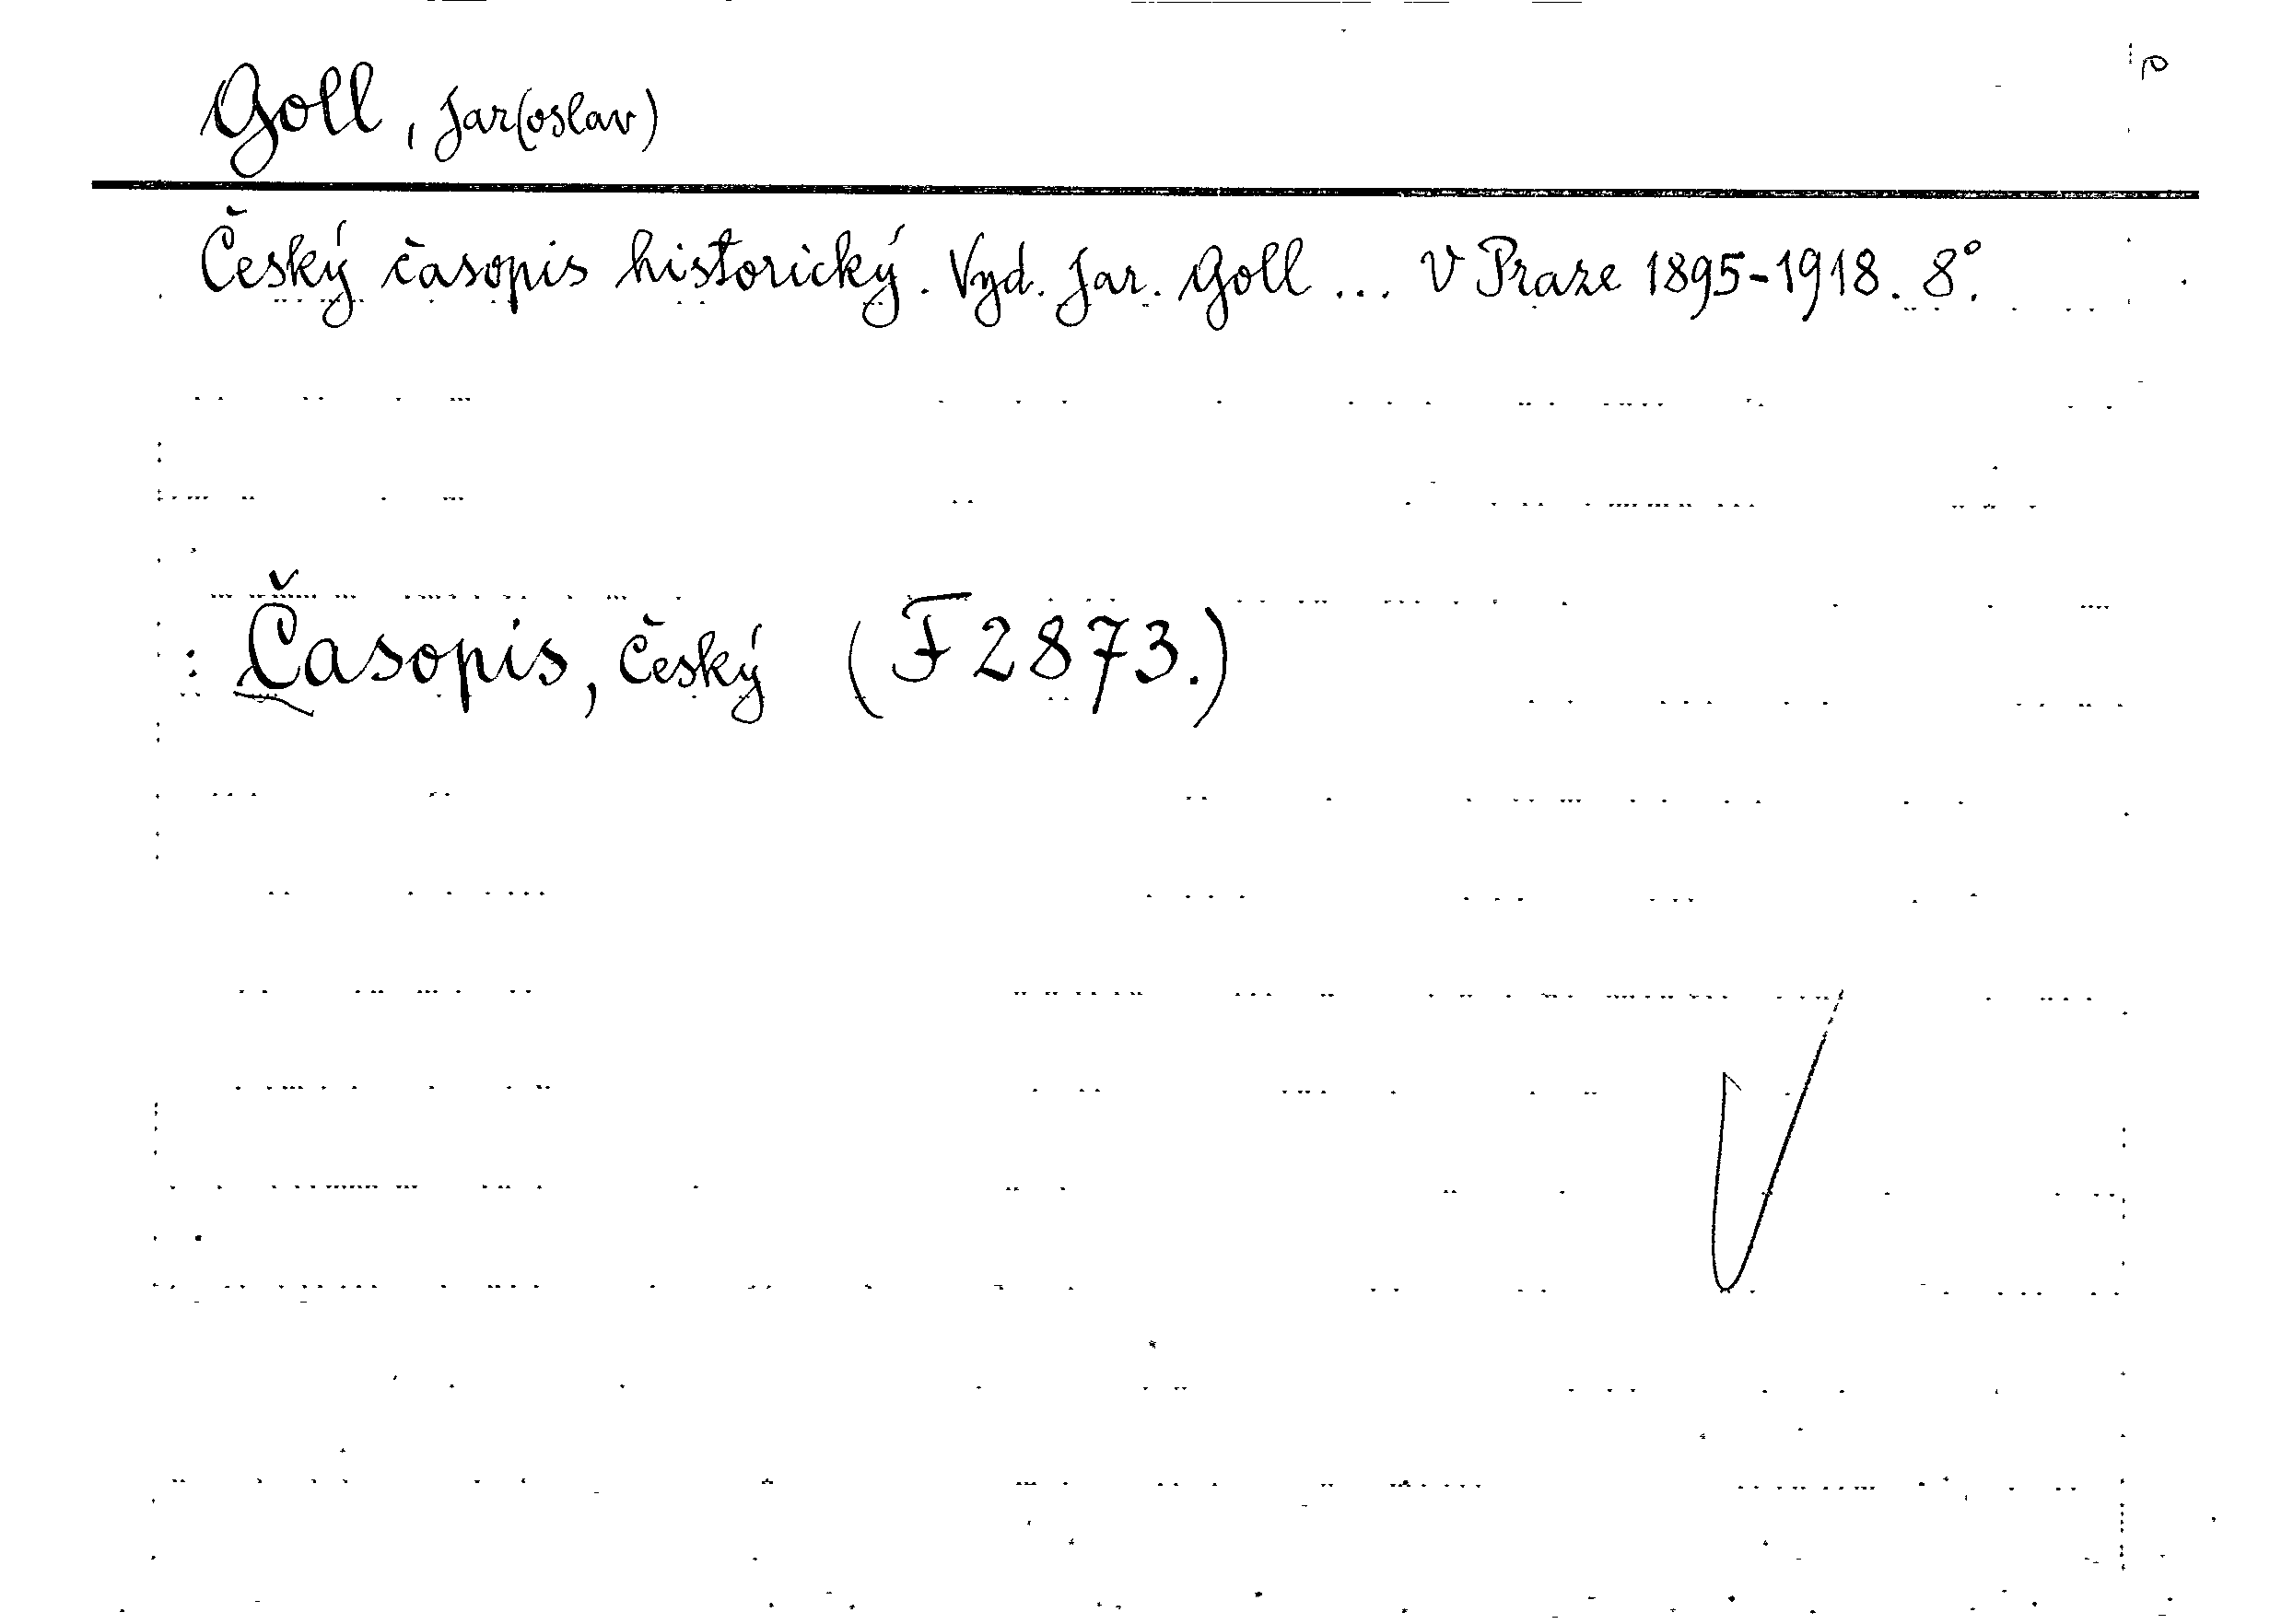 Goll, Jar(oslav)
Český časopis historický. Vyd. Jar. Goll ... V Praze 1895-1918. 8°.
: Časopis, český (F 2873.)